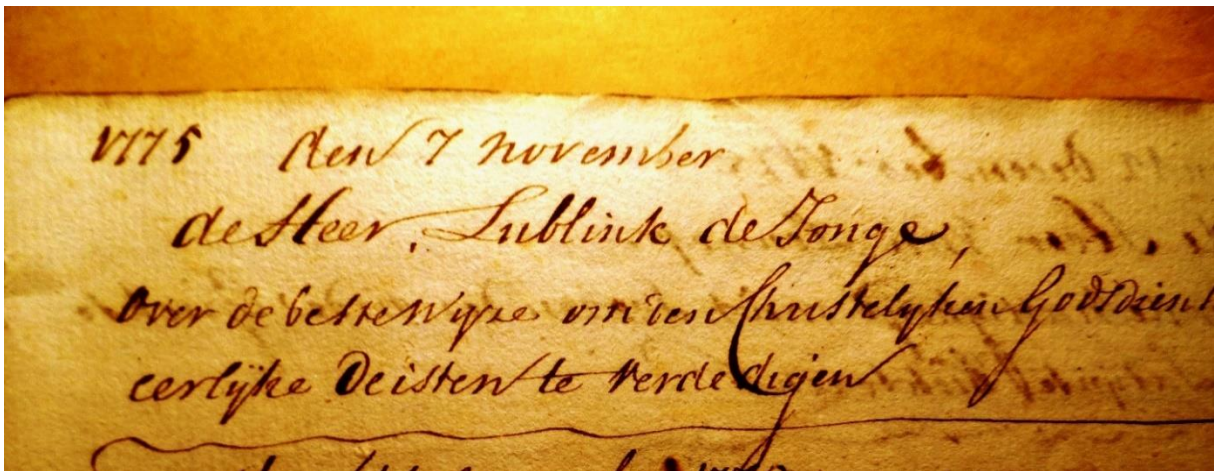 1775 den 7 november
de Heer, Lublink de Jonge,
over de beste wyze om den Christelyken Godsdienst
eerlijke Deisten te verdedigen